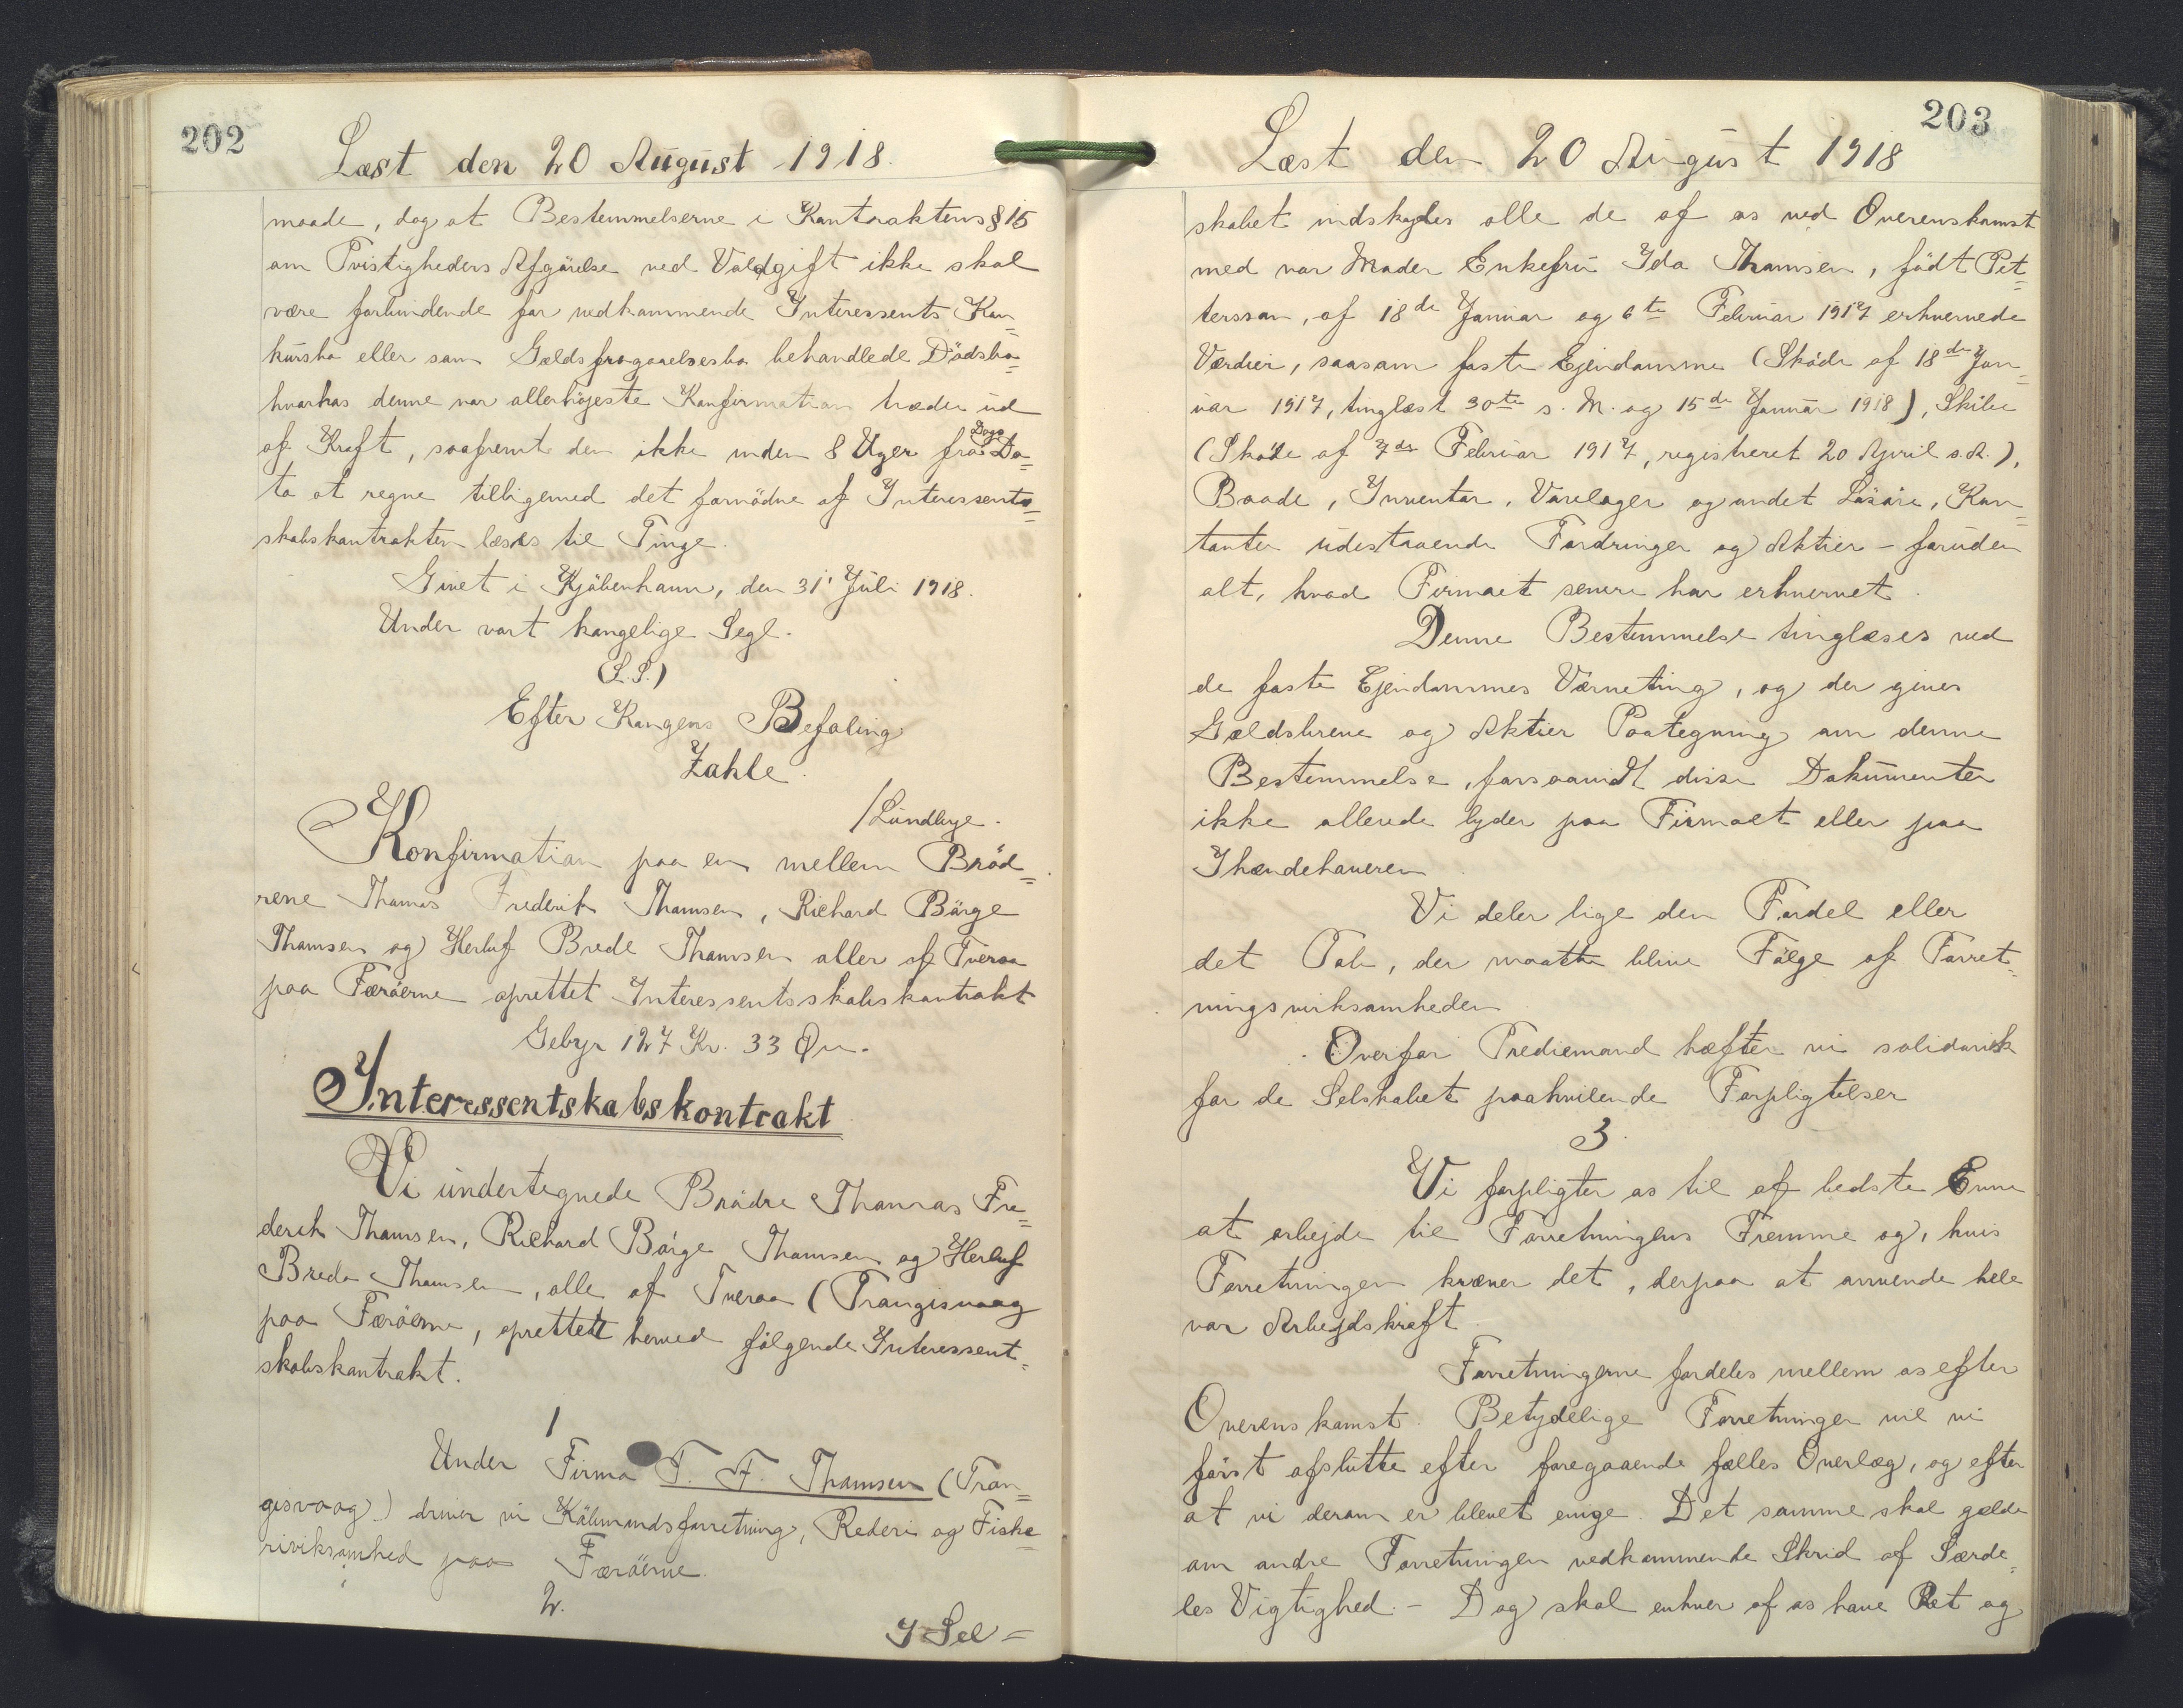 202
Læst den 20 August 1918.
maade, dog at Bestemmelserne i Kontraktens § 15
om Tvistigheders Afgörelse ved Voldgift ikke skal
være forbindende for vedkommende Interessents Kon=
kursbo eller som Gældsfragaaelsesbo behandlede Dödsbo=
hvorhos denne vor allerhöjeste Konfirmation træder ud
af Kraft, saafremt den ikke inden 8 Uger fra Dags Da=
to at regne tilligemed det fornödne af Interessents=
skabskontrakten læses til Tinge.
Givet i Kjöbenhavn, den 31' Juli 1918.
Under vort kongelige Segl.
(L.S.)
Efter Kongens Befaling
Zahle.
/Lundbye.
Konfirmation paa en mellem Bröd=
rene Thomas Frederik Thomsen, Richard Börge
Thomsen og Herluf Brede Thomsen aller af Tveraa
paa Færöerne oprettet Interessentsskabskontrakt
Gebyr 127 Kr. 33 Øre.
Interessentskabskontrakt
Vi undertegnede Brödre Thomas Fre=
derik Thomsen, Richard Börge Thomsen og Herluf
Brede Thomsen, alle af Tveraa (Trangisvaag
paa Færöerne, oprettett herved fölgende Interessent=
skabskontrakt.
1
Under Firma T. F. Thomsen (Tran=
gisvaag) driver vi Köbmandsforretning, Rederi og Fiske=
rivirksomhed paa Færöerne.
2.
I Sel=
203
Læst den 20 August 1918
skabet indskydes alle de af os ved Overenskomst
med vor Moder Enkefru Ida Thomsen, födt Pet=
tersson, af 18de Januar og 6te Februar 1917 erhvervede
Værdier, saasom faste Ejendomme (Sköde af 18de Jan=
uar 1917, tinglæst 30te s. M. og 15de Januar 1918), Skibe
(Sköde af 7de Februar 1917, registreret 20 April s.A.),
Baade, Inventar, Varelager og andet Lösöre, Kon=
tanter udestaaende Fordringer og Aktier - foruden
alt, hvad Firmaet senere har erhvervet.
Denne Bestemmelse tinglæses ved
de faste Ejendommes Værneting, og der gives
Gældsbreve og Aktier Paategning om denne
Bestemmelse, forsaavidt disse Dokumenter
ikke allerede lyder paa Firmaet eller paa
Ihændehaveren.
Vi deler lige den Fordel eller
det Tab, der maatte blive Fölge af Forret=
ningsvirksomheden
Overfor Trediemand hæfter vi solidarisk
for de Selskabet paahvilende Forpligtelser
3.
Vi forpligter os til af bedste Evne
at arbejde til Forretningens Fremme og, hvis
Forretningen kræver det, derpaa at anvende hele
vor Arbejdskraft.
Forretningerne fordeles mellem os efter
Overenskomst. Betydelige Forretninger vil vi
först afslutte efter foregaaende fælles Overlæg, og efter
at vi derom er blevet enige. Det samme skal gælde
om andre Forretningen vedkommende Skrid af Særde=
les Vigtighed. - Dog skal enhver af os have Ret og